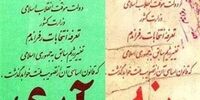 دولت موقت انقلاب اسلامی
وزارت کشور
تعرفه انتخابات رفراندم
تغییر رژیم سابق به جمهوری اسلامی
که قانون اساسی آن از تصویب ملت خواهد گذشت
دولت موقت انقلاب اسلامی
وزارت کشور
تعرفه انتخابات رفراندم
تغییر رژیم سابق به جمهوری اسلامی
که قانون اساسی آن از تصویب ملت خواهد گذشت